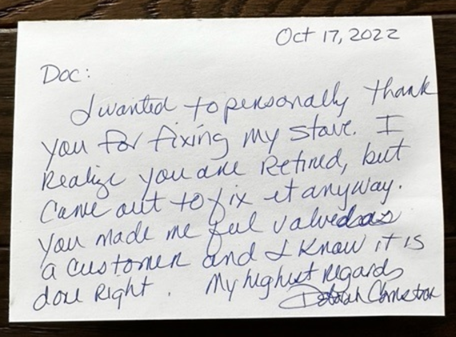 Oct 17, 2022
Doc:
I wanted to personally thank
you for fixing my stove. I
Realize you are Retired, but
Came out to fix it anyway.
you made me feel valued as
a customer and I know it is
done Right. My highest Regards
Deborah